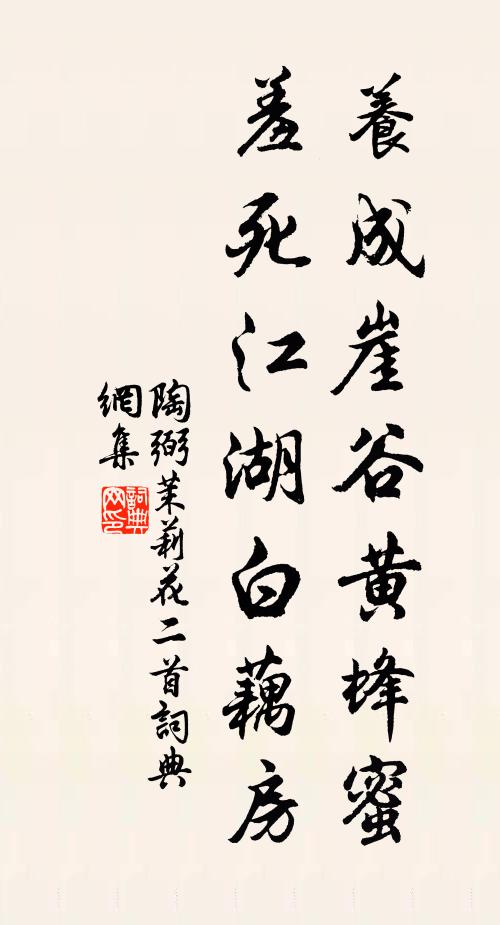 養成崖谷黄蜂蜜
羞死江湖白藕房
陶弼茉莉花二首詞典
網集
詞典
网印